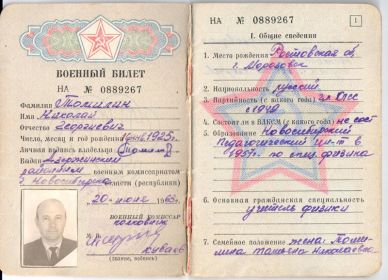 ВОЕННЫЙ БИЛЕТ
НА № 0889267
Фамилия Томилин
Имя Николай
Отчество Георгиевич
Число, месяц и год рождения 1925г.
Личная подпись владельца
Выдан Дзержинским
районным военным комиссариатом
г. Новосибирска (республики)
"20" июня 1963г.
ВОЕННЫЙ КОМИССАР
полковник
(звание, подпись)
НА № 0889267 1
I. Общие сведения
1. Место рождения Ростовская об
г. Морозовск
2. Национальность русский
3. Партийность (с какого года) чл. КПСС
с 1949
4. Состоит ли в ВЛКСМ (с какого года) не сост
5. Образование Новосибирский
Педагогический ин-т в
1957г. по спец. физика
6. Основная гражданская специальность
учитель физики
7. Семейное положение жена: Томи-
лина Татьяна Николаевна